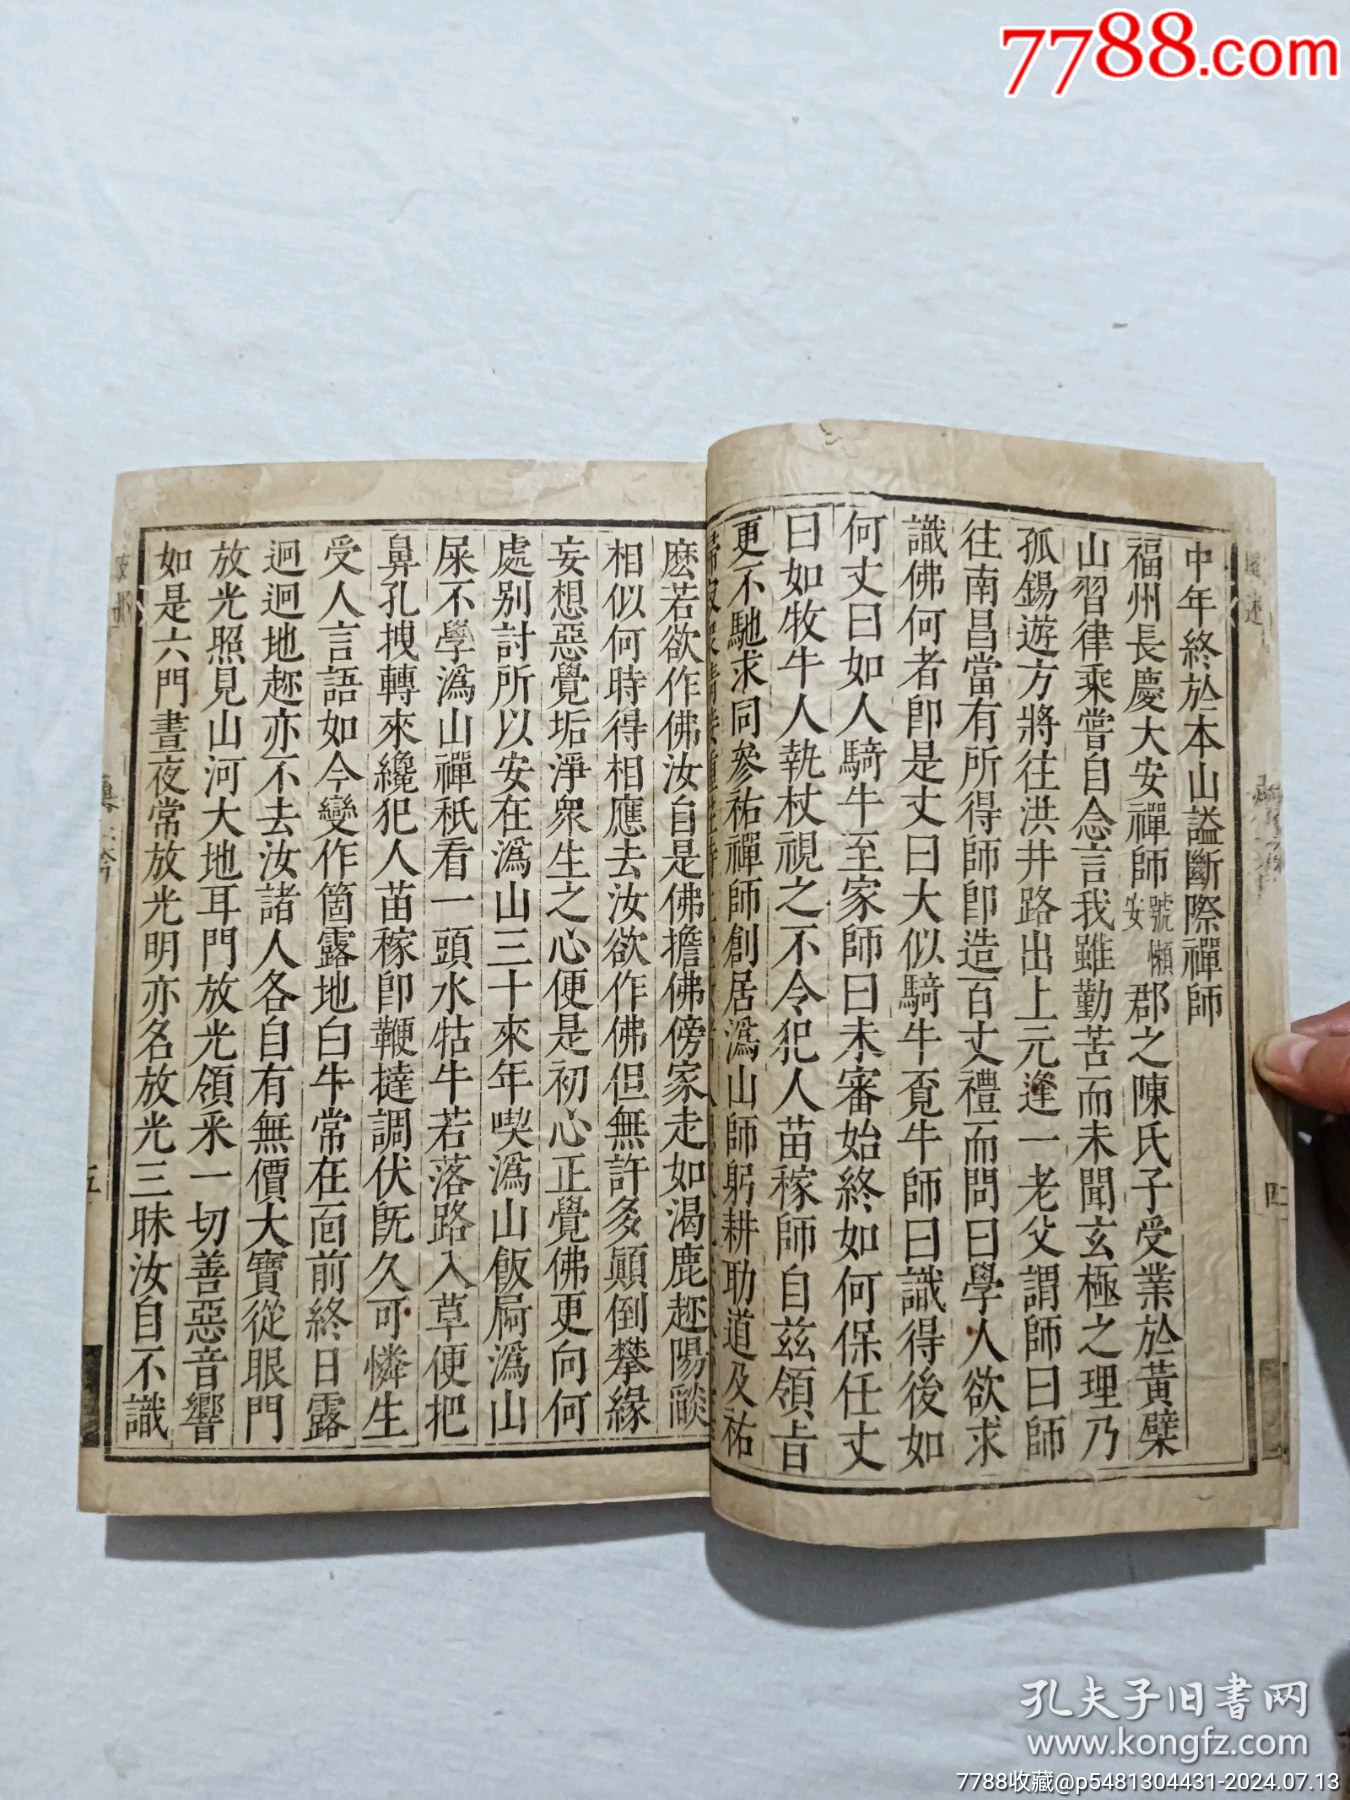 7788.com
中年終於本山謚斷際禪師
福州長慶大安禪師號懶安郡之陳氏子受業於黃檗
山習律乘嘗自念言我雖勤苦而未聞玄極之理乃
孤錫遊方將往洪井路出上元逢一老父謂師曰師
往南昌當有所得師卽造百丈禮而問曰學人欲求
識佛何者卽是丈曰大似騎牛覔牛師曰識得後如
何丈曰如人騎牛至家師曰未審始終如何保任丈
曰如牧牛人執杖視之不令犯人苗稼師自茲領旨
更不馳求同參祐禪師創居溈山師躬耕助道及祐
麽若欲作佛汝自是佛擔佛傍家走如渴鹿趂陽燄
相似何時得相應去汝欲作佛但無許多顚倒攀緣
妄想惡覺垢淨衆生之心便是初心正覺佛更向何
處别討所以安在溈山三十來年喫溈山飯屙溈山
屎不學溈山禪秖看一頭水牯牛若落路入草便把
鼻孔拽轉來纔犯人苗稼卽鞭撻調伏旣久可憐生
受人言語如今變作箇露地白牛常在面前終日露
迥迥地趂亦不去汝諸人各自有無價大寶從眼門
放光照見山河大地耳門放光領采一切善惡音響
如是六門晝夜常放光明亦名放光三昧汝自不識
五
孔夫子旧書网
www.kongfz.com
7788收藏@p5481304431-2024.07.13